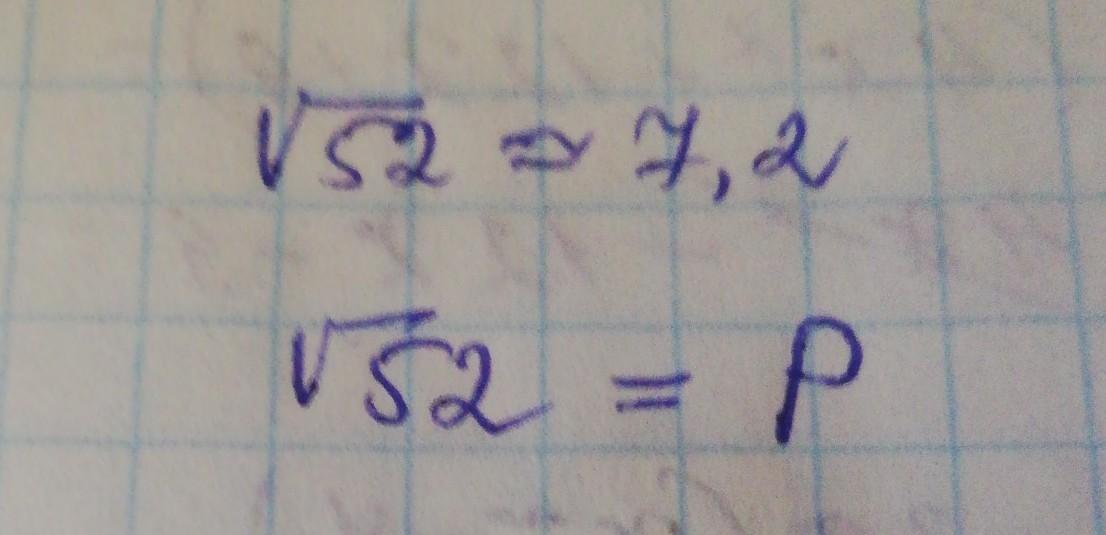 √52 ≃ 7,2
√52 = P